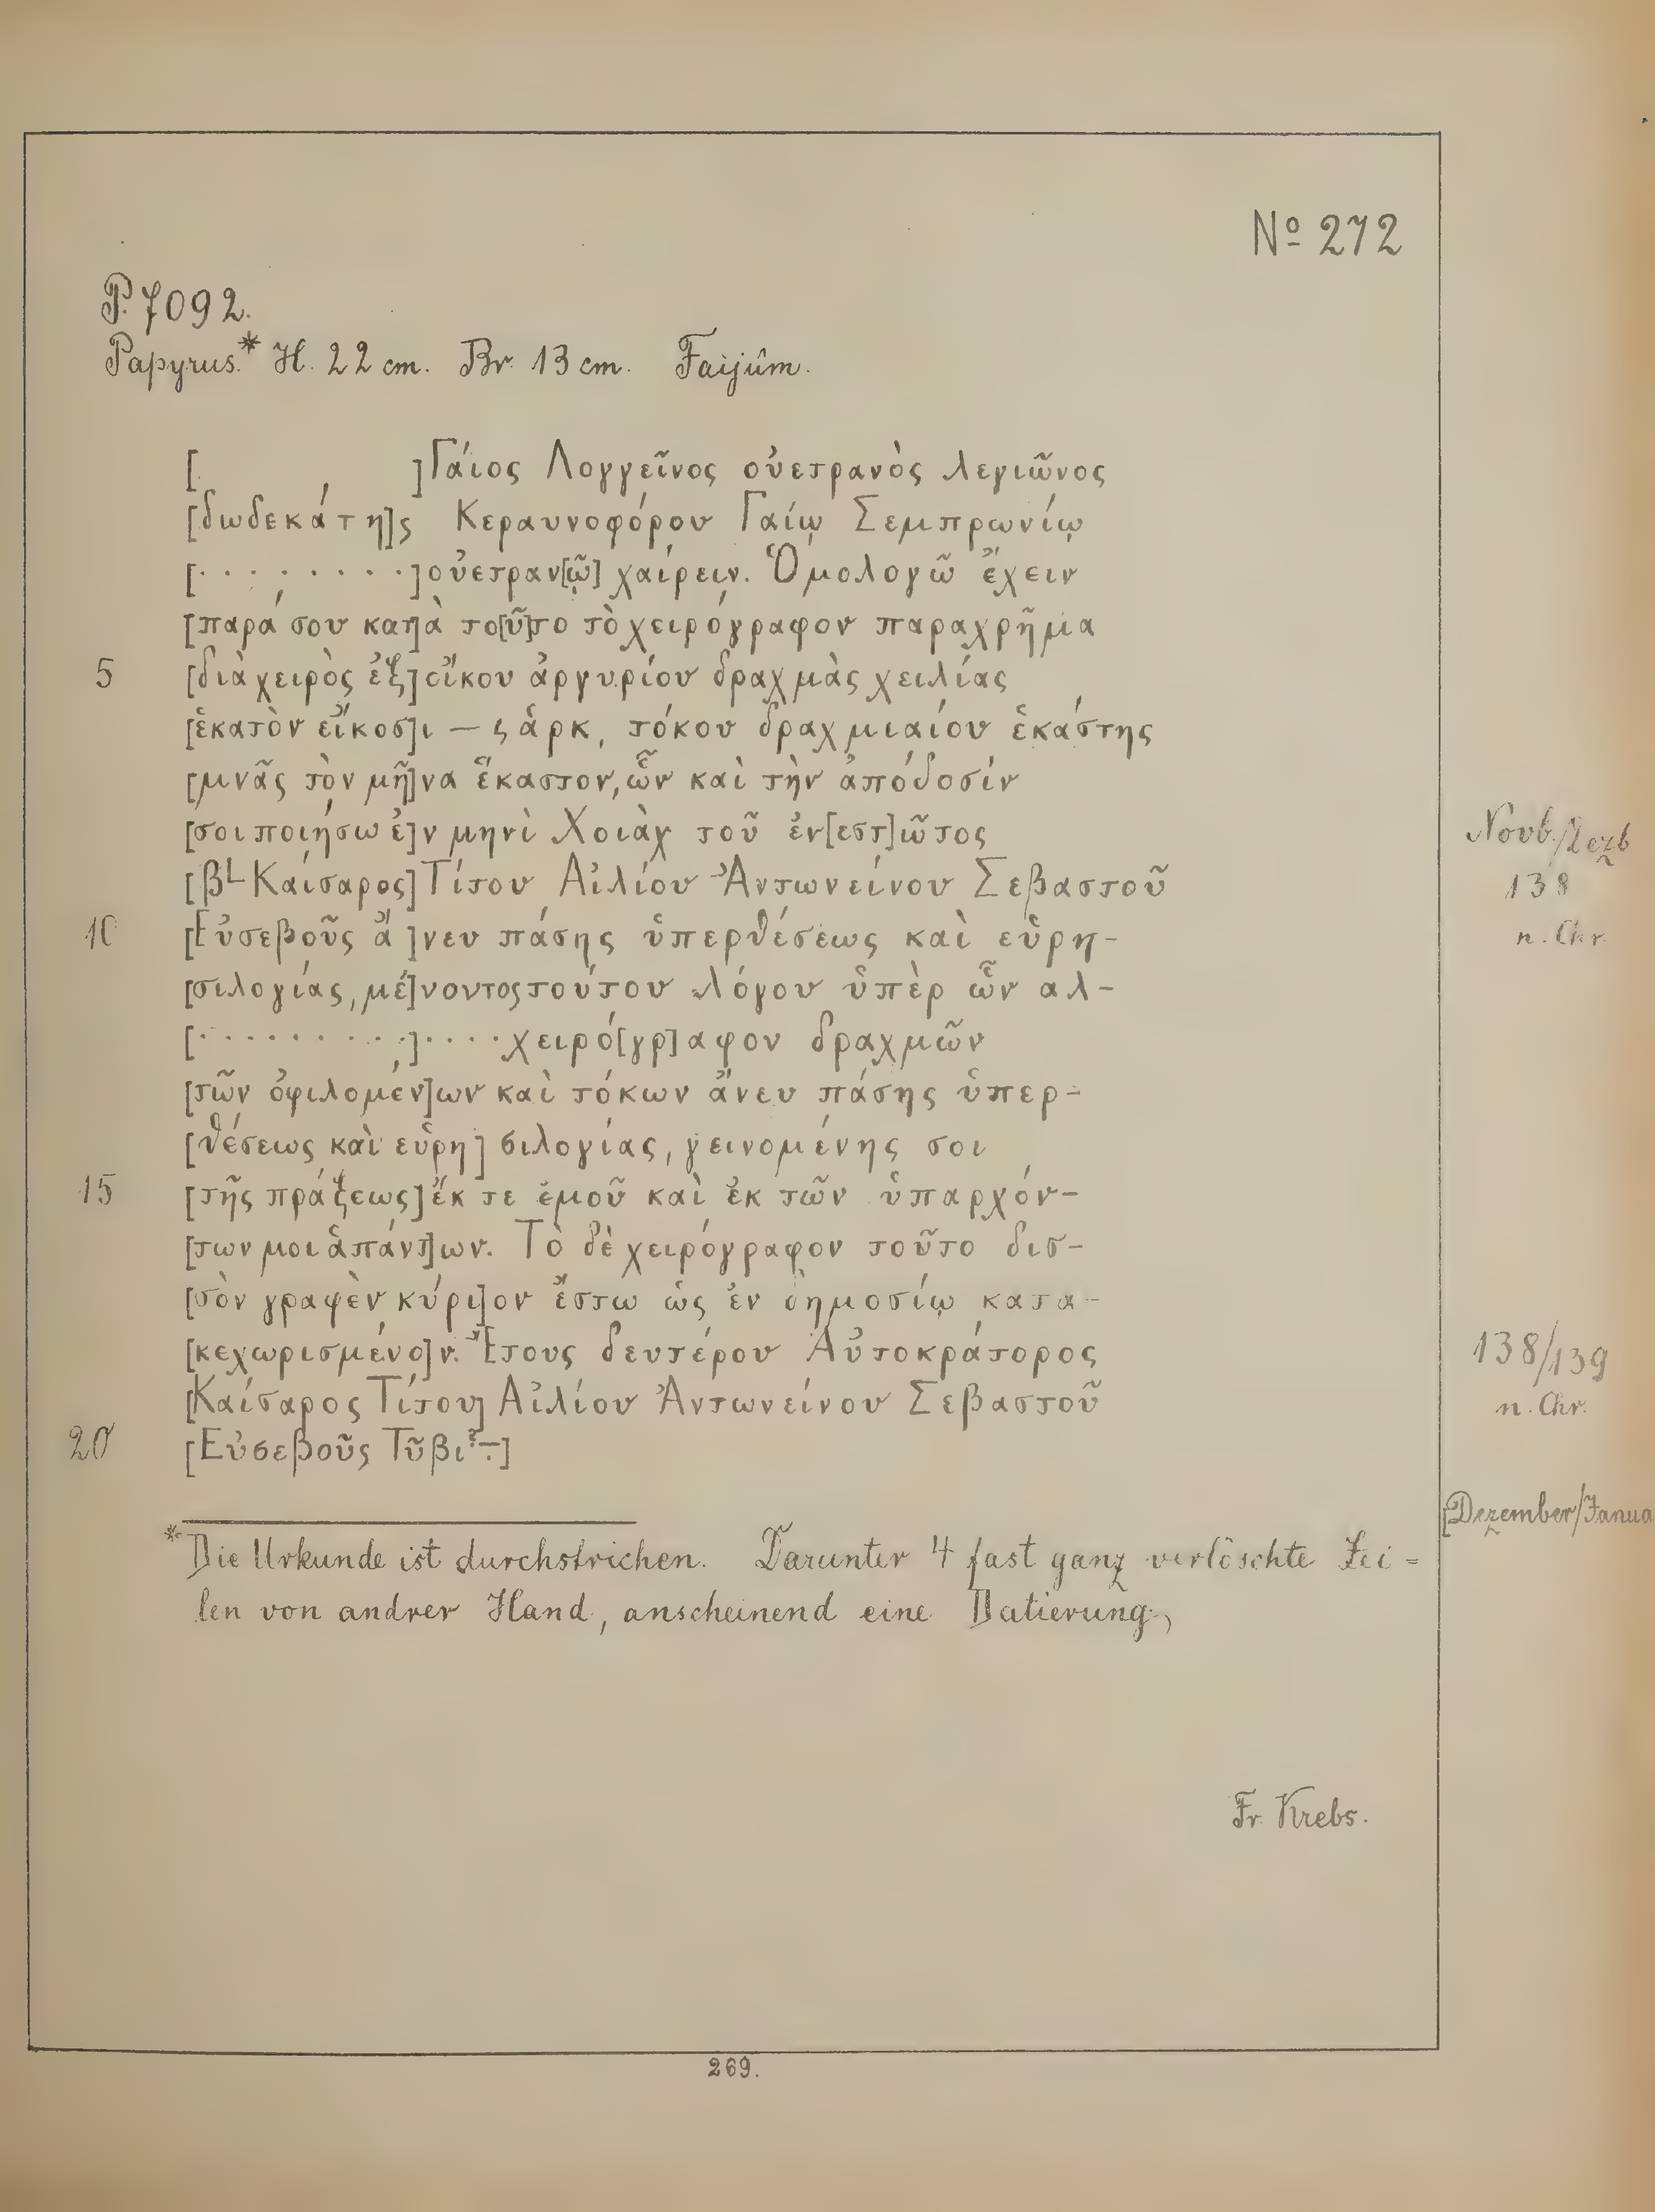 No 272
P. 7092.
Papyrus.* H. 22 cm. Br. 13 cm. Faijûm.
[ ]Γάϊος Λογγεῖνος οὐετρανὸς λεγιῶνος
[δωδεκάτη]ς Κεραυνοφόρου Γαίῳ Σεμπρωνίῳ
[· · · · · · · ·]οὐετραν[ῷ] χαίρειν. Ὁμολογῶ ἔχειν
[παρά σου κατ]ὰ το[ῦ]το τὸ χειρόγραφον παραχρῆμα
5 [διὰ χειρὸς ἐξ] οἴκου ἀργυρίου δραχμὰς χειλίας
[ἑκατὸν εἴκοσ]ι — ϛ ἀρκ, τόκου δραχμιαίου ἑκάστης
[μνᾶς τὸν μῆ]να ἕκαστον, ὧν καὶ τὴν ἀπόδοσίν
[σοι ποιήσω ἐ]ν μηνὶ Χοιὰχ τοῦ ἐν[εστ]ῶτος
Novb./Dezb
138
n. Chr.
[β L Καίσαρος] Τίτου Αἰλίου Ἀντωνείνου Σεβαστοῦ
10 [Εὐσεβοῦς ἄ]νευ πάσης ὑπερθέσεως καὶ εὑρη-
[σιλογίας, μέ]νοντος τούτου λόγου ὑπὲρ ὧν αλ-
[· · · · · · · · ·] · · · · χειρό[γρ]αφον δραχμῶν
[τῶν ὀφιλομέν]ων καὶ τόκων ἄνευ πάσης ὑπερ-
[θέσεως καὶ εὑρη]σιλογίας, γεινομένης σοι
15 [τῆς πράξεως] ἔκ τε ἐμοῦ καὶ ἐκ τῶν ὑπαρχόν-
[των μοι ἁπάντ]ων. Τὸ δὲ χειρόγραφον τοῦτο δισ-
[σὸν γραφὲν κύρι]ον ἔστω ὡς ἐν δημοσίῳ κατα-
[κεχωρισμένο]ν. Ἔτους δευτέρου Αὐτοκράτορος
138/139
n. Chr.
[Καίσαρος Τίτου] Αἰλίου Ἀντωνείνου Σεβαστοῦ
20 [Εὐσεβοῦς Τῦβι ? –]
[Dezember/Janua
* Die Urkunde ist durchstrichen. Darunter 4 fast ganz verlöschte Zei-
len von andrer Hand, anscheinend eine Datierung,
Fr. Krebs.
269.